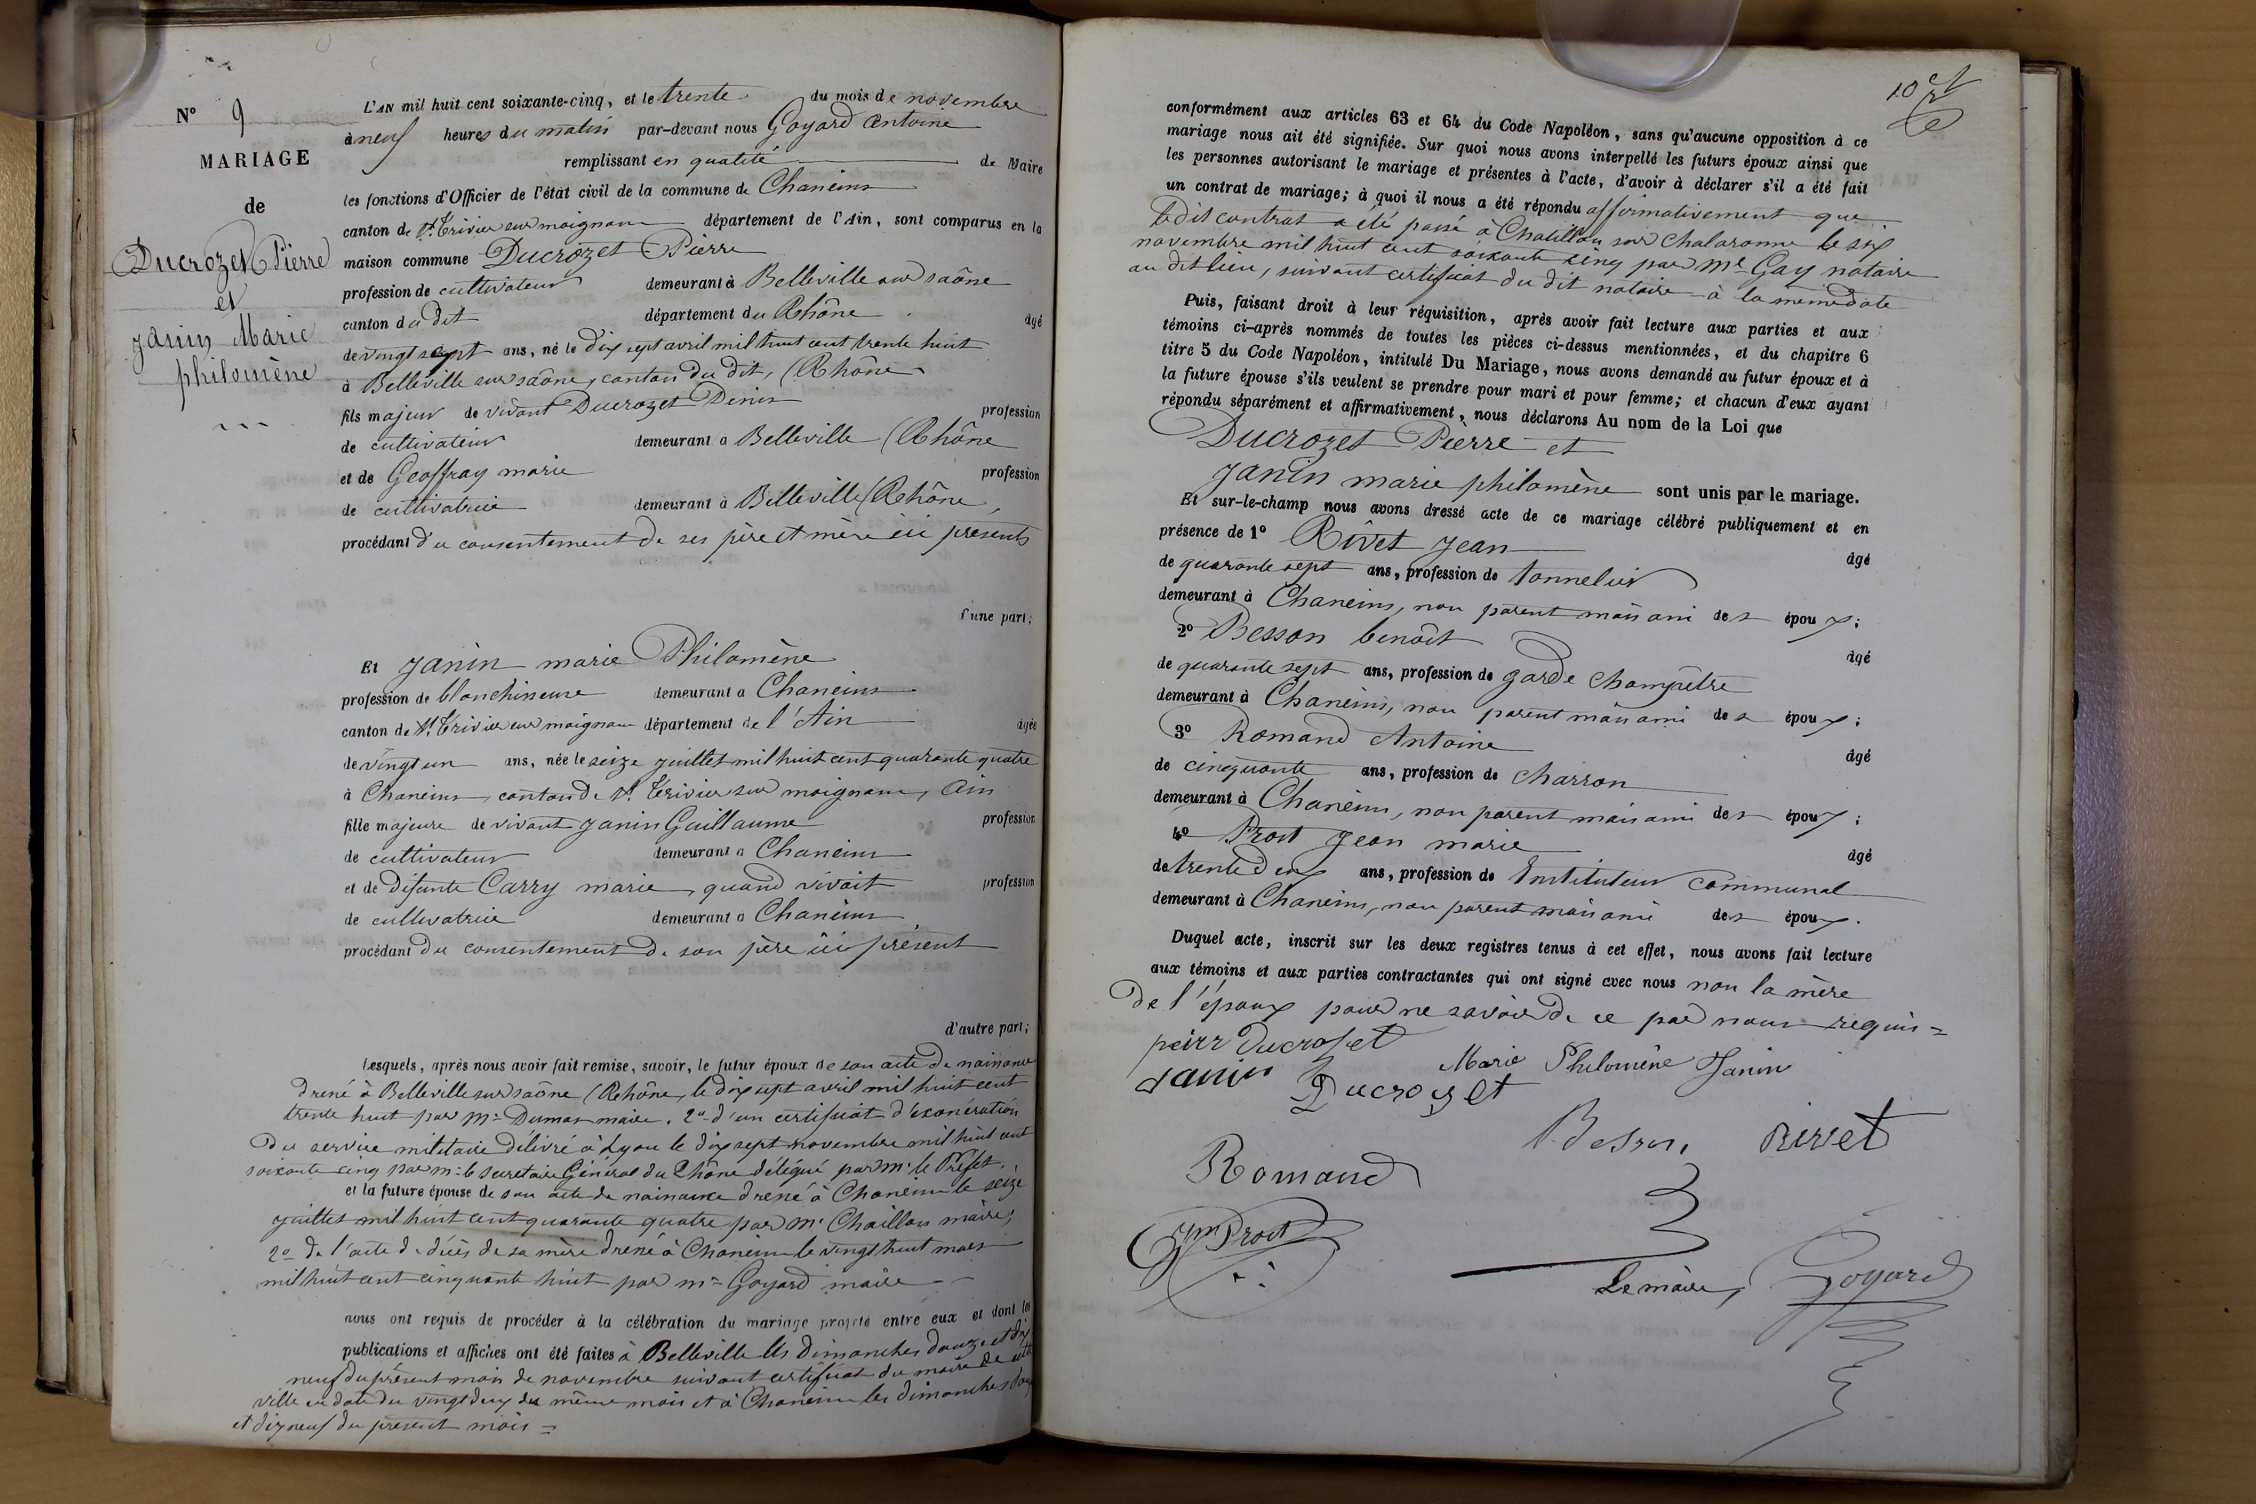 N° 9
MARIAGE
de
Ducrozet Pierre
et
Janin Marie
philomène
L'AN mil huit cent soixante-cinq, et le trente du mois de novembre
à neuf heures du matin par-devant nous Goyard Antoine
remplissant en qualité de Maire
les fonctions d'Officier de l'état civil de la commune de Chaneins
canton de St. Trivier sur moignans département de l'Ain, sont comparus en la
maison commune Ducrozet Pierre
profession de cultivateur demeurant à Belleville sur saône
canton du dit département du Rhône âgé
de vingt sept ans, né le dix sept avril mil huit cent trente huit
à Belleville sur saône, canton du dit, (Rhône
fils majeur de vivant Ducrozet Denis profession
de cultivateur demeurant à Belleville (Rhône
et de Geoffray marie profession
de cultivatrice demeurant à Belleville (Rhône,
procédant du consentement de ses père et mère ici présents
d'une part;
Et Janin marie Philomène
profession de blanchisseuse demeurant à Chaneins
canton de St. Trivier sur moignans département de l'Ain âgée
de vingt un ans, née le seize juillet mil huit cent quarante quatre
à Chaneins, canton de St. Trivier sur moignans, Ain
fille majeure de vivant Janin Guillaume profession
de cultivateur demeurant à Chaneins
et de défunte Carry marie, quand vivait profession
de cultivatrice demeurant à Chaneins
procédant du consentement de son père ici présent
d'autre part;
Lesquels, après nous avoir fait remise, savoir, le futur époux de son acte de naissance
dressé à Belleville sur saône (Rhône, le dix sept avril mil huit cent
trente huit par Mr. Dumas maire. 2° d'un certificat d'exonération
du service militaire délivré à Lyon le dix sept novembre mil huit cent
soixante cinq par mr. le secretaire Général du Rhône délégué par mr. le Préfet.
et la future épouse de son acte de naissance dressé à Chaneins le seize
juillet mil huit cent quarante quatre par mr. Chaillou maire;
2° de l'acte de décès de sa mère dressé à Chaneins le vingt huit mars
mil huit cent cinquante huit par mr. Goyard maire
nous ont requis de procéder à la célébration du mariage projeté entre eux et dont les
publications et affiches ont été faites à Belleville les dimanches douze et dix
neuf du présent mois de novembre suivant certificat du maire de cette
ville en date du vingt deux du même mois et à Chaneins les dimanches douze
et dix neuf du présent mois =
10
conformément aux articles 63 et 64 du Code Napoléon, sans qu'aucune opposition à ce
mariage nous ait été signifiée. Sur quoi nous avons interpellé les futurs époux ainsi que
les personnes autorisant le mariage et présentes à l'acte, d'avoir à déclarer s'il a été fait
un contrat de mariage; à quoi il nous a été répondu affirmativement que
le dit contrat a été passé à Chatillon sur chalaronne le six
novembre mil huit cent soixante cinq par Me. Gay notaire
au dit lieu, suivant certificat du dit notaire à la même date
Puis, faisant droit à leur réquisition, après avoir fait lecture aux parties et aux
témoins ci-après nommés de toutes les pièces ci-dessus mentionnées, et du chapitre 6
titre 5 du Code Napoléon, intitulé Du Mariage, nous avons demandé au futur époux et à
la future épouse s'ils veulent se prendre pour mari et pour femme; et chacun d'eux ayant
répondu séparément et affirmativement, nous déclarons Au nom de la Loi que
Ducrozet Pierre et
Janin marie philomène sont unis par le mariage.
Et sur-le-champ nous avons dressé acte de ce mariage célébré publiquement et en
présence de 1° Rivet Jean âgé
de quarante sept ans, profession de tonnelier
demeurant à Chaneins, non parent mais ami des époux;
2° Besson benoît âgé
de quarante sept ans, profession de garde champêtre
demeurant à Chaneins, non parent mais ami des époux;
3° Romand Antoine âgé
de cinquante ans, profession de charron
demeurant à Chaneins, non parent mais ami des époux;
4° Prost Jean marie âgé
de trente deux ans, profession de Instituteur communal
demeurant à Chaneins, non parent mais ami des époux.
Duquel acte, inscrit sur les deux registres tenus à cet effet, nous avons fait lecture
aux témoins et aux parties contractantes qui ont signé avec nous non la mère
de l'époux pour ne savoir de ce par nous requis =
peirr ducroset
Marie Philomène Janin
Janin Ducrozet
Besson Rivet
Romand
Jm Prost
Le maire, Goyard